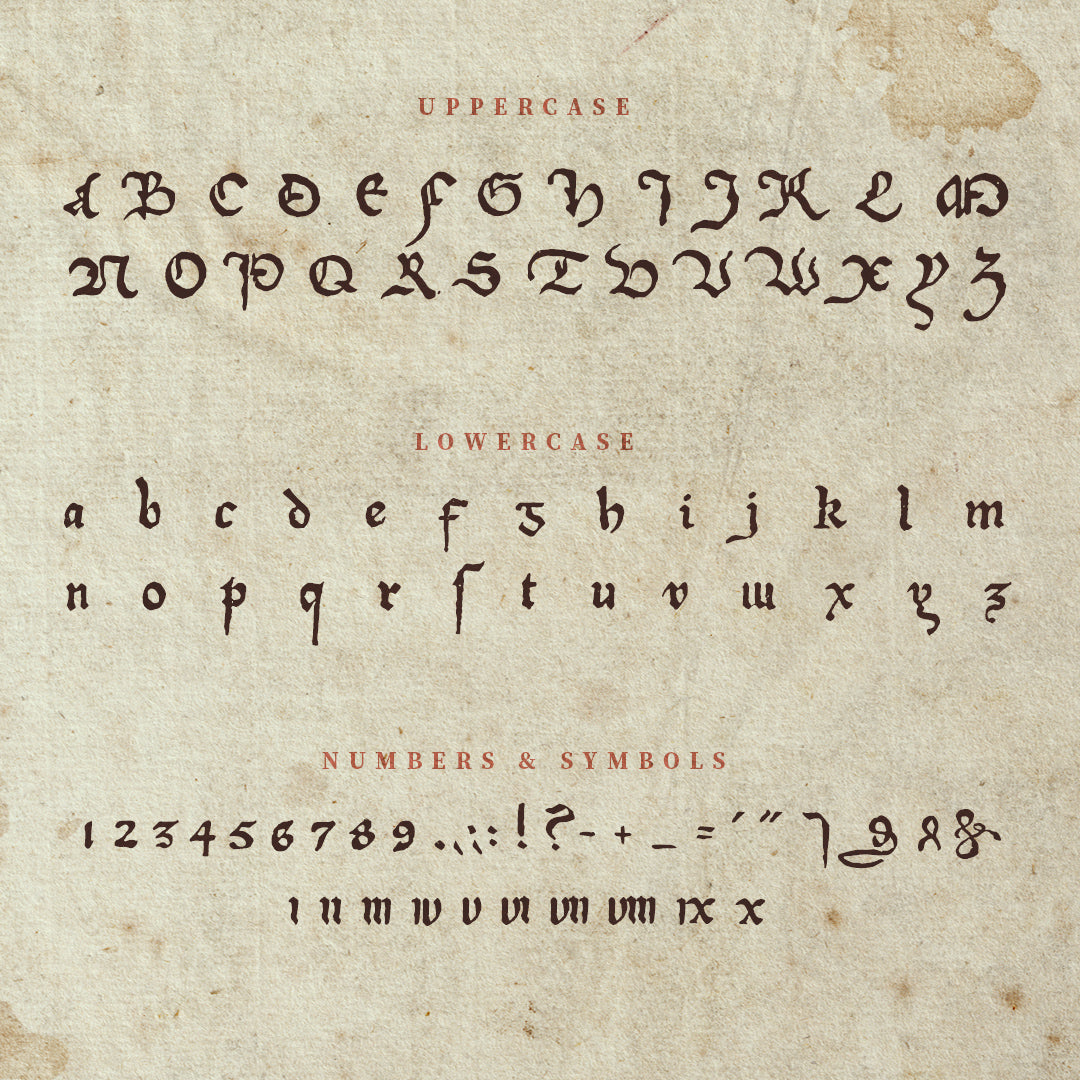 UPPERCASE
A B C D E F G H I J K L M
N O P Q R S T U V W X Y Z
LOWERCASE
a b c d e f g h i j k l m
n o p q r ſ t u v w x y z
NUMBERS & SYMBOLS
1 2 3 4 5 6 7 8 9 . , ; : ! ? - + _ = ′ ″ &
ı ıı ııı ıv v vı vıı vııı ıx x